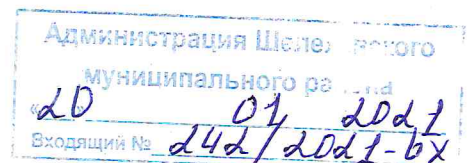 Администрация Шелеховского
муниципального района
«20 01 2021
Входящий № 242/2021-вх